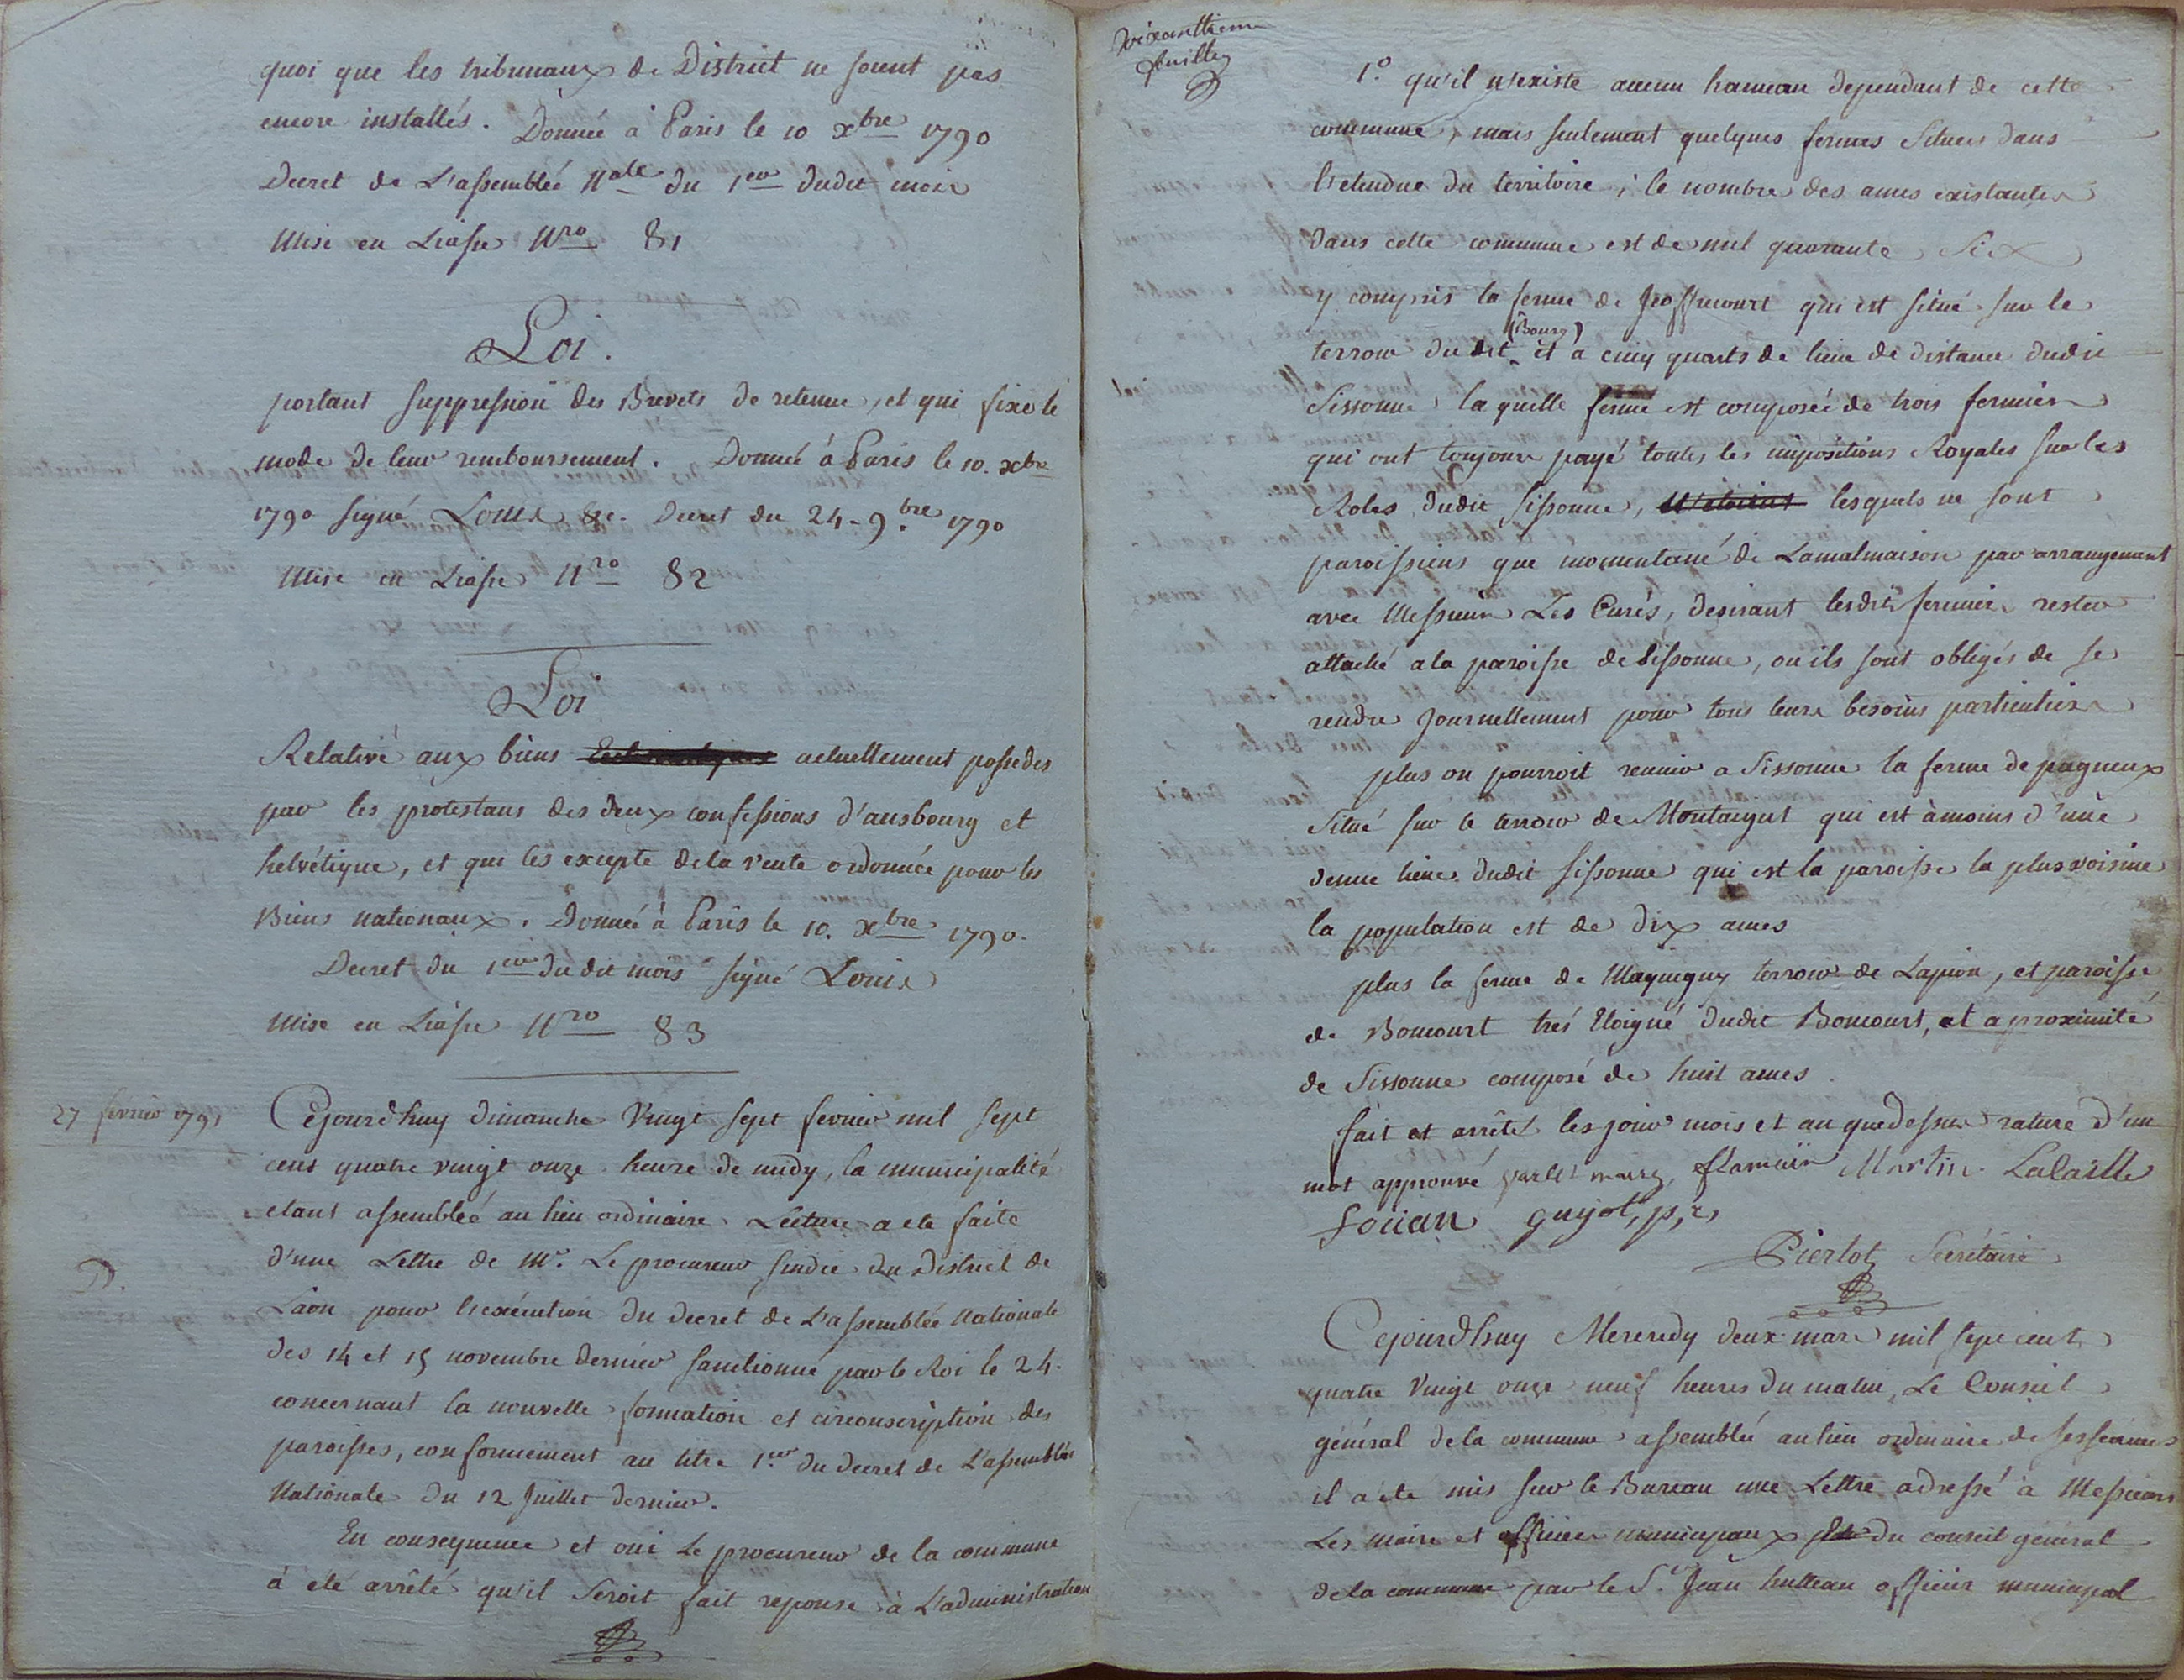 quoi que les tribunaux de District ne soient pas
encore installés. Donnée à Paris le 10 xbre 1790
Decret de L'assemblée Nale du 1er dudit mois
Mise en Liasse Nro 81
Loi.
portant suppression des Brevets de retenue, et qui fixe le
mode de leur remboursement. Donnée à Paris le 10. xbre
1790 signé Louis &c. Decret du 24 - 9.bre 1790
Mise en Liasse Nro 82
Loi
Relative aux biens actuellement possedes
par les protestans des deux confessions d'ausbourg et
helvétique, et qui les excepte dela vente ordonnée pour les
Biens nationaux. Donnée à Paris le 10. xbre 1790.
Decret du 1er du dit mois signé Louis
Mise en Liasse Nro 83
27 fevrier 1791
Cejourdhuy dimanche Vingt sept fevrier mil sept
cent quatre vingt onze heure de midy, la municipalité
etant assembleé au lieu ordinaire Lecture a ete faite
d'une Lettre de Mr. Le procureur sindic du District de
D.
Laon pour l'exécution du decret de L'assemblée Nationale
des 14 et 15 novembre dernier sanctionné par le Roi le 24.
concernant la nouvelle formation et circonscription des
paroisses, conformement au titre 1.er du decret de L'assemblée
Nationale du 12 Juillet dernier.
En consequence et oui Le procureur de la commune
à eté arrêté qu'il seroit fait reponse à L'administration
feuille
1.o qu'il n'existe aucun hameau dependant de cette
commune, mais seulement quelques fermes situees dans
l'etendue du territoire; le nombre des ames existantes
dans cette commune est de mil quarante six
y compris la ferme de Jeoffrecourt qui est situé sur le
(Bourg)
terroir du dit et a cinq quarts de lieue de distance dudit
Sissonne la quelle ferme est composeé de trois fermiers
qui ont toujours payé toutes les impositions Royales sur les
Roles dudit sissonne, lesquels ne sont
paroissiens que momentané de Lamalmaison par arrangement
avec Messieurs Les Curés, desirant lesdits fermiers rester
attaché ala paroisse de Sissonne, ou ils sont obligés de se
rendre Journellement pour tous leurs besoins particuliers
plus on pourroit reunir a Sissonne la ferme de pagneux
Situé sur le terroir de Montaigut qui est àmoins d'une
demie lieue dudit sissonne qui est la paroisse la plus voisine
la population est de dix ames
plus la ferme de Maquigny terroir de Lapion, et paroisse
de Boncourt trés Eloigné dudit Boncourt, et a proximité
de Sissonne composé de huit ames.
fait et arrêté les jour mois et an que dessus rature d'un
mot approuvé flamain Martin. Lalaille
foüan guyot, p, c,
Pierlot Secrétaire
Cejourdhuy Mercredy deux mars mil sept cent
quatre Vingt onze neuf heures du matin, Le Conseil
général dela commune assemblé au lieu ordinaire de ses séances
il a ete mis sur le Bureau une Lettre adressé à Messieurs
Les maire et officiers municipaux du conseil général
dela commune par le S.r Jean hutteau officier municipal